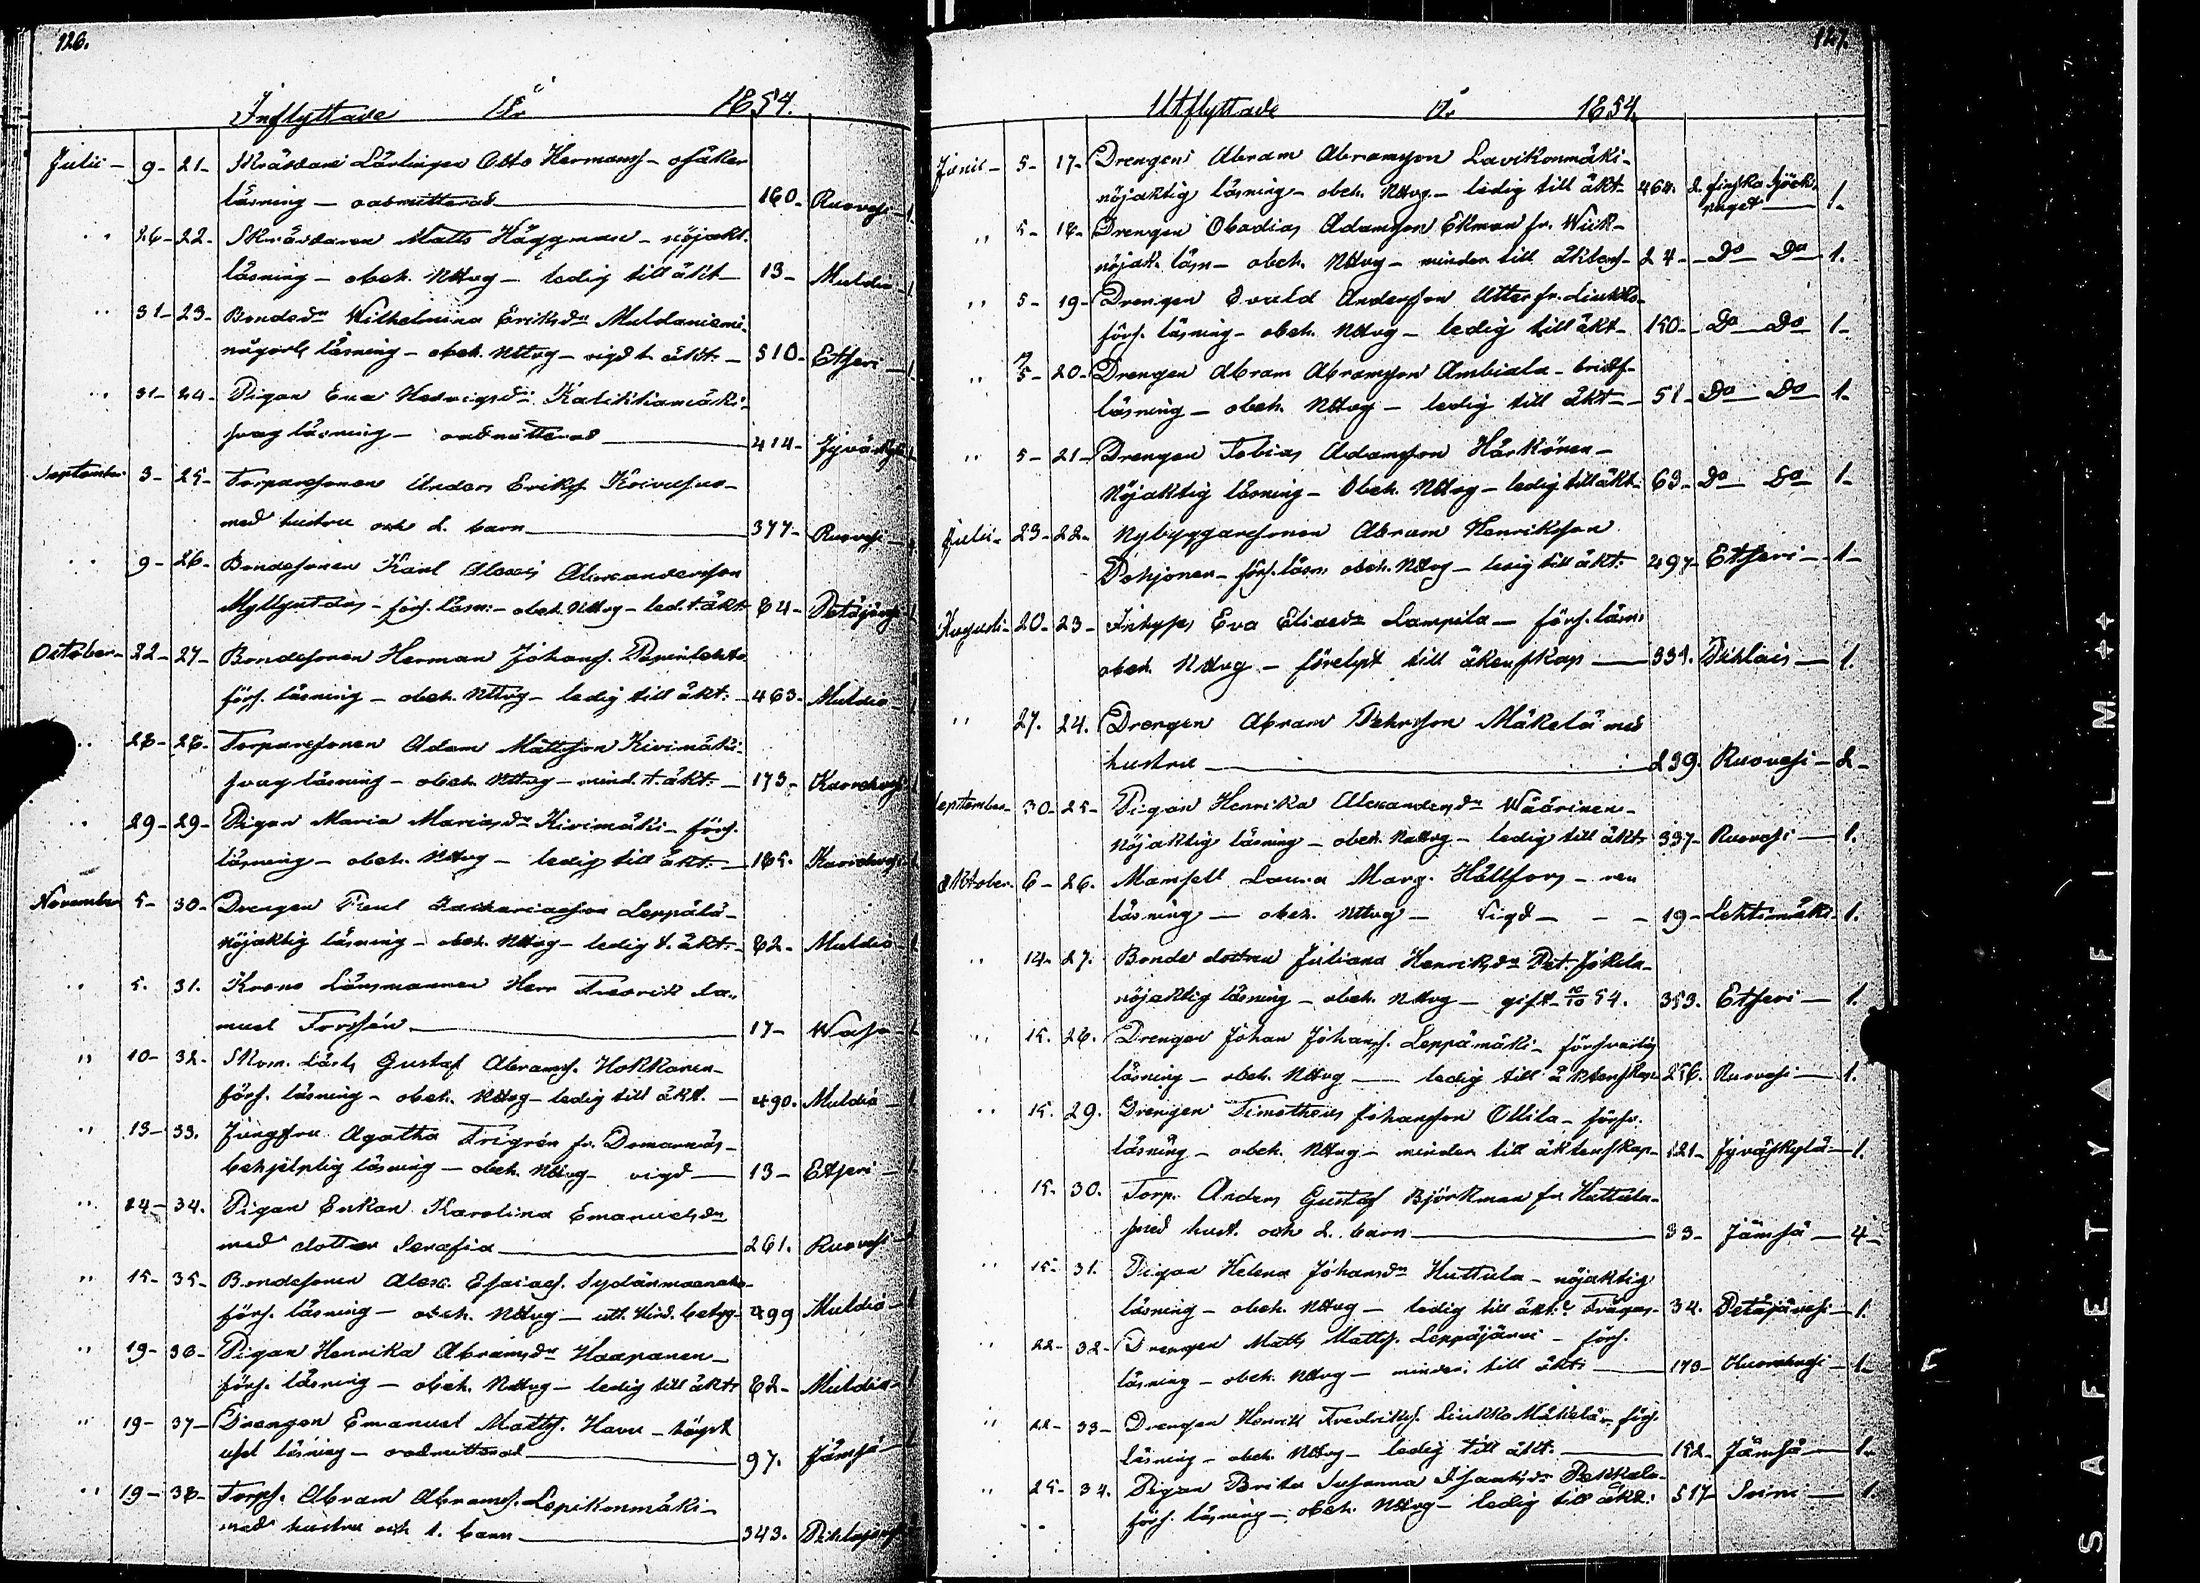 126.
Inflyttade År 1854.
Julii - 9 - 21 - Skräddare Lärlingen Otto Hermanss - osäker
läsning - oadmitterad 160 - Ruovesi - 1
" 26 - 22 - Skräddaren Matts Häggman - nöjakt.
läsning - obeh. Nttvg - ledig till äkt 13 - Multia - 1
" 31 - 23 - Bondedr Wilhelmina Eriksdr Muldaniemi -
läsning - obeh. Nttvg - vigd t. äkt - 510 - Etseri - 1
" 31 - 24 - Pigan Eva Hedvigsdr
svag läsning - oadmitterad 414 - Jyväskylä
September 3 - 25 - Torparesonen Anders Eriks. Koivusuo -
med hustru och 2. barn 377 - Ruovesi
" 9 - 26 - Bondesonen Karl Alexis Alexandersson
förs. läsn: - obeh. Nttvg - led. t. äkt 84 - Petäjäv
October - 22 - 27 - Bondesonen Herman Johans.
förs. läsning - obeh. Nttvg - ledig till äkt. - 463 - Multia
" 28 - 28 - Torparesonen Adam Mattsson Kivimäki
svag läsning - obeh. Nttvg - mind. t. äkt. - 173 -
" 29 - 29 - Pigan Maria Mariasdr Kivimäki - förs.
läsning - obeh. Nttvg - ledig till äkt. - 165.
November 5 - 30 - Drengen Paul Zachariasson Leppälä -
nöjaktig läsning - obeh. Nttvg - ledig t. äkt. 82 - Multia
" 5. 31. Krono Länsmannen Herr Fredrik Sa„
muel Forssén 17 - Wasa
" 10 - 32 - Skom. Lärl. Gustaf Abrams. Hokkanen -
förs. läsning - obeh. Nttvg - ledig till äkt. - 490. Multia
" 13 - 33. Jungfru Agatha Frigrén fr. Domarnäs -
behjelplig läsning - obeh. Nttvg - vigd 13 - Etseri
" 14 - 34. Pigan Enkan Karolina Emanuelsdr
med dotter Serafia 261. Ruovesi
" 15 - 35 - Bondesonen Alex. Esaiass. Sydänmaanaho -
förs. läsning - obeh. Nttvg - utt. Hind. betyg - 499 Multia
" 19 - 36 - Pigan Henrika Abramsdr Haapanen -
förs. läsning - obeh. Nttvg - ledig till äkt 82 - Multia
" 19 - 37 - Drengen Emanuel Matts. Havu - högst
usel läsning - oadmitterad 97. Jämsä
" 19 - 38 - Torps. Abram Abramss. Lepikonmäki -
med hustru och 1. barn 343.
127.
Utflyttade År 1854.
Junii - 5 - 17 - Drengen Abram Abramsson Lavikonmäki -
nöjaktig läsning - obeh. Nttvg - ledig till äkt 464. 2. finska Sjöek.
1 -
" 5 - 18 - Drengen Obadias Adamsson Ekman fr. Wik -
nöjak. läsn - obeh. Nttvg - minder till äktens - 24 - Do Do 1.
" 5 - 19 - Drengen Evald Andersson Utter fr. Liukko -
förs. läsning - obeh. Nttvg - ledig till äkt - 150 - Do Do 1 -
" 5 - 20 - Drengen Abram Abramsson Ambiala - bristf -
läsning - obeh. Nttvg - ledig till äkt - 51 - Do Do 1 -
" 5 - 21 - Drengen Tobias Adamsson Härkönen -
Nöjaktig läsning - Obeh. Nttvg - ledig till äkt. 63 - Do Do 1 -
Julii - 23 - 22 - Nybyggaresonen Abram Henriksson
Pohjonen - förs. läsn: obeh. Nttvg - ledig till äkt. 497 - Etseri - 1 -
Augusti - 20 - 23 - Inhyses Eva Eliaedr Lampila - förs. läsn:
obeh. Nttvg - förelyst till äkenskap 339. Pihlais 1.
" 27. 24. Drengen Abram Pehrsson Mäkelä med
hustru 239. Ruovesi - 2 -
September - 30 - 25 - Pigan Henrika Alexandersdr Wäärinen -
Nöjaktig läsning - obeh. Nattvg - ledig till äkt. 337 - Ruovesi 1.
Oktober. 6 - 26. Mamsell Laura Marg. Hällfors - ren
läsning - obeh. Nttvg - Vigd 19 - Lehtimäki - 1.
" 14 - 27. Bonde dottren Juliana Henriksdr Pet. Jokela -
nöjaktig läsning - obeh. Nttvg - gift 54. 353. Etseri 1.
" 15. 28. Drengen Johan Johanss. Leppämäki - försvarlig
läsning - obeh. Nttvg ledig till äktenskap 256. Ruovesi 1.
" 15. 29. Drengen Timotheus Johansson Ollila - försv.
läsning - obeh. Nttvg - minder till äktenskap - 121 - Jyväskylä 1.
15. 30. Torp. Anders Gustaf Björkman fr. Huttula -
med hust. och 2. barn 33 - Jämsä 4 -
" 15 - 31. Pigan Helena Johansdr Huttula - nöjaktig
läsning - obeh. Nttvg - ledig till äkt. 34. Petäjävesi - 1.
" 22 - 32 - Drengen Matts Matts. Leppäjärvi - förs.
läsning - obeh. Nttvg - minder till äkt. 173 - 1 -
" 22 - 33 - Drengen Henrik Fredriks. Liukko Mäkelä - förs.
läsning - obeh. Nttvg - ledig till äkt. 152 - Jämsä 1 -
" 25 - 34. Pigan Brita Susanna Isaksdr Pekkala -
förs. läsning - obeh. Nttvg - ledig till äkt. 517 - Soini 1.
SAFETY FILM